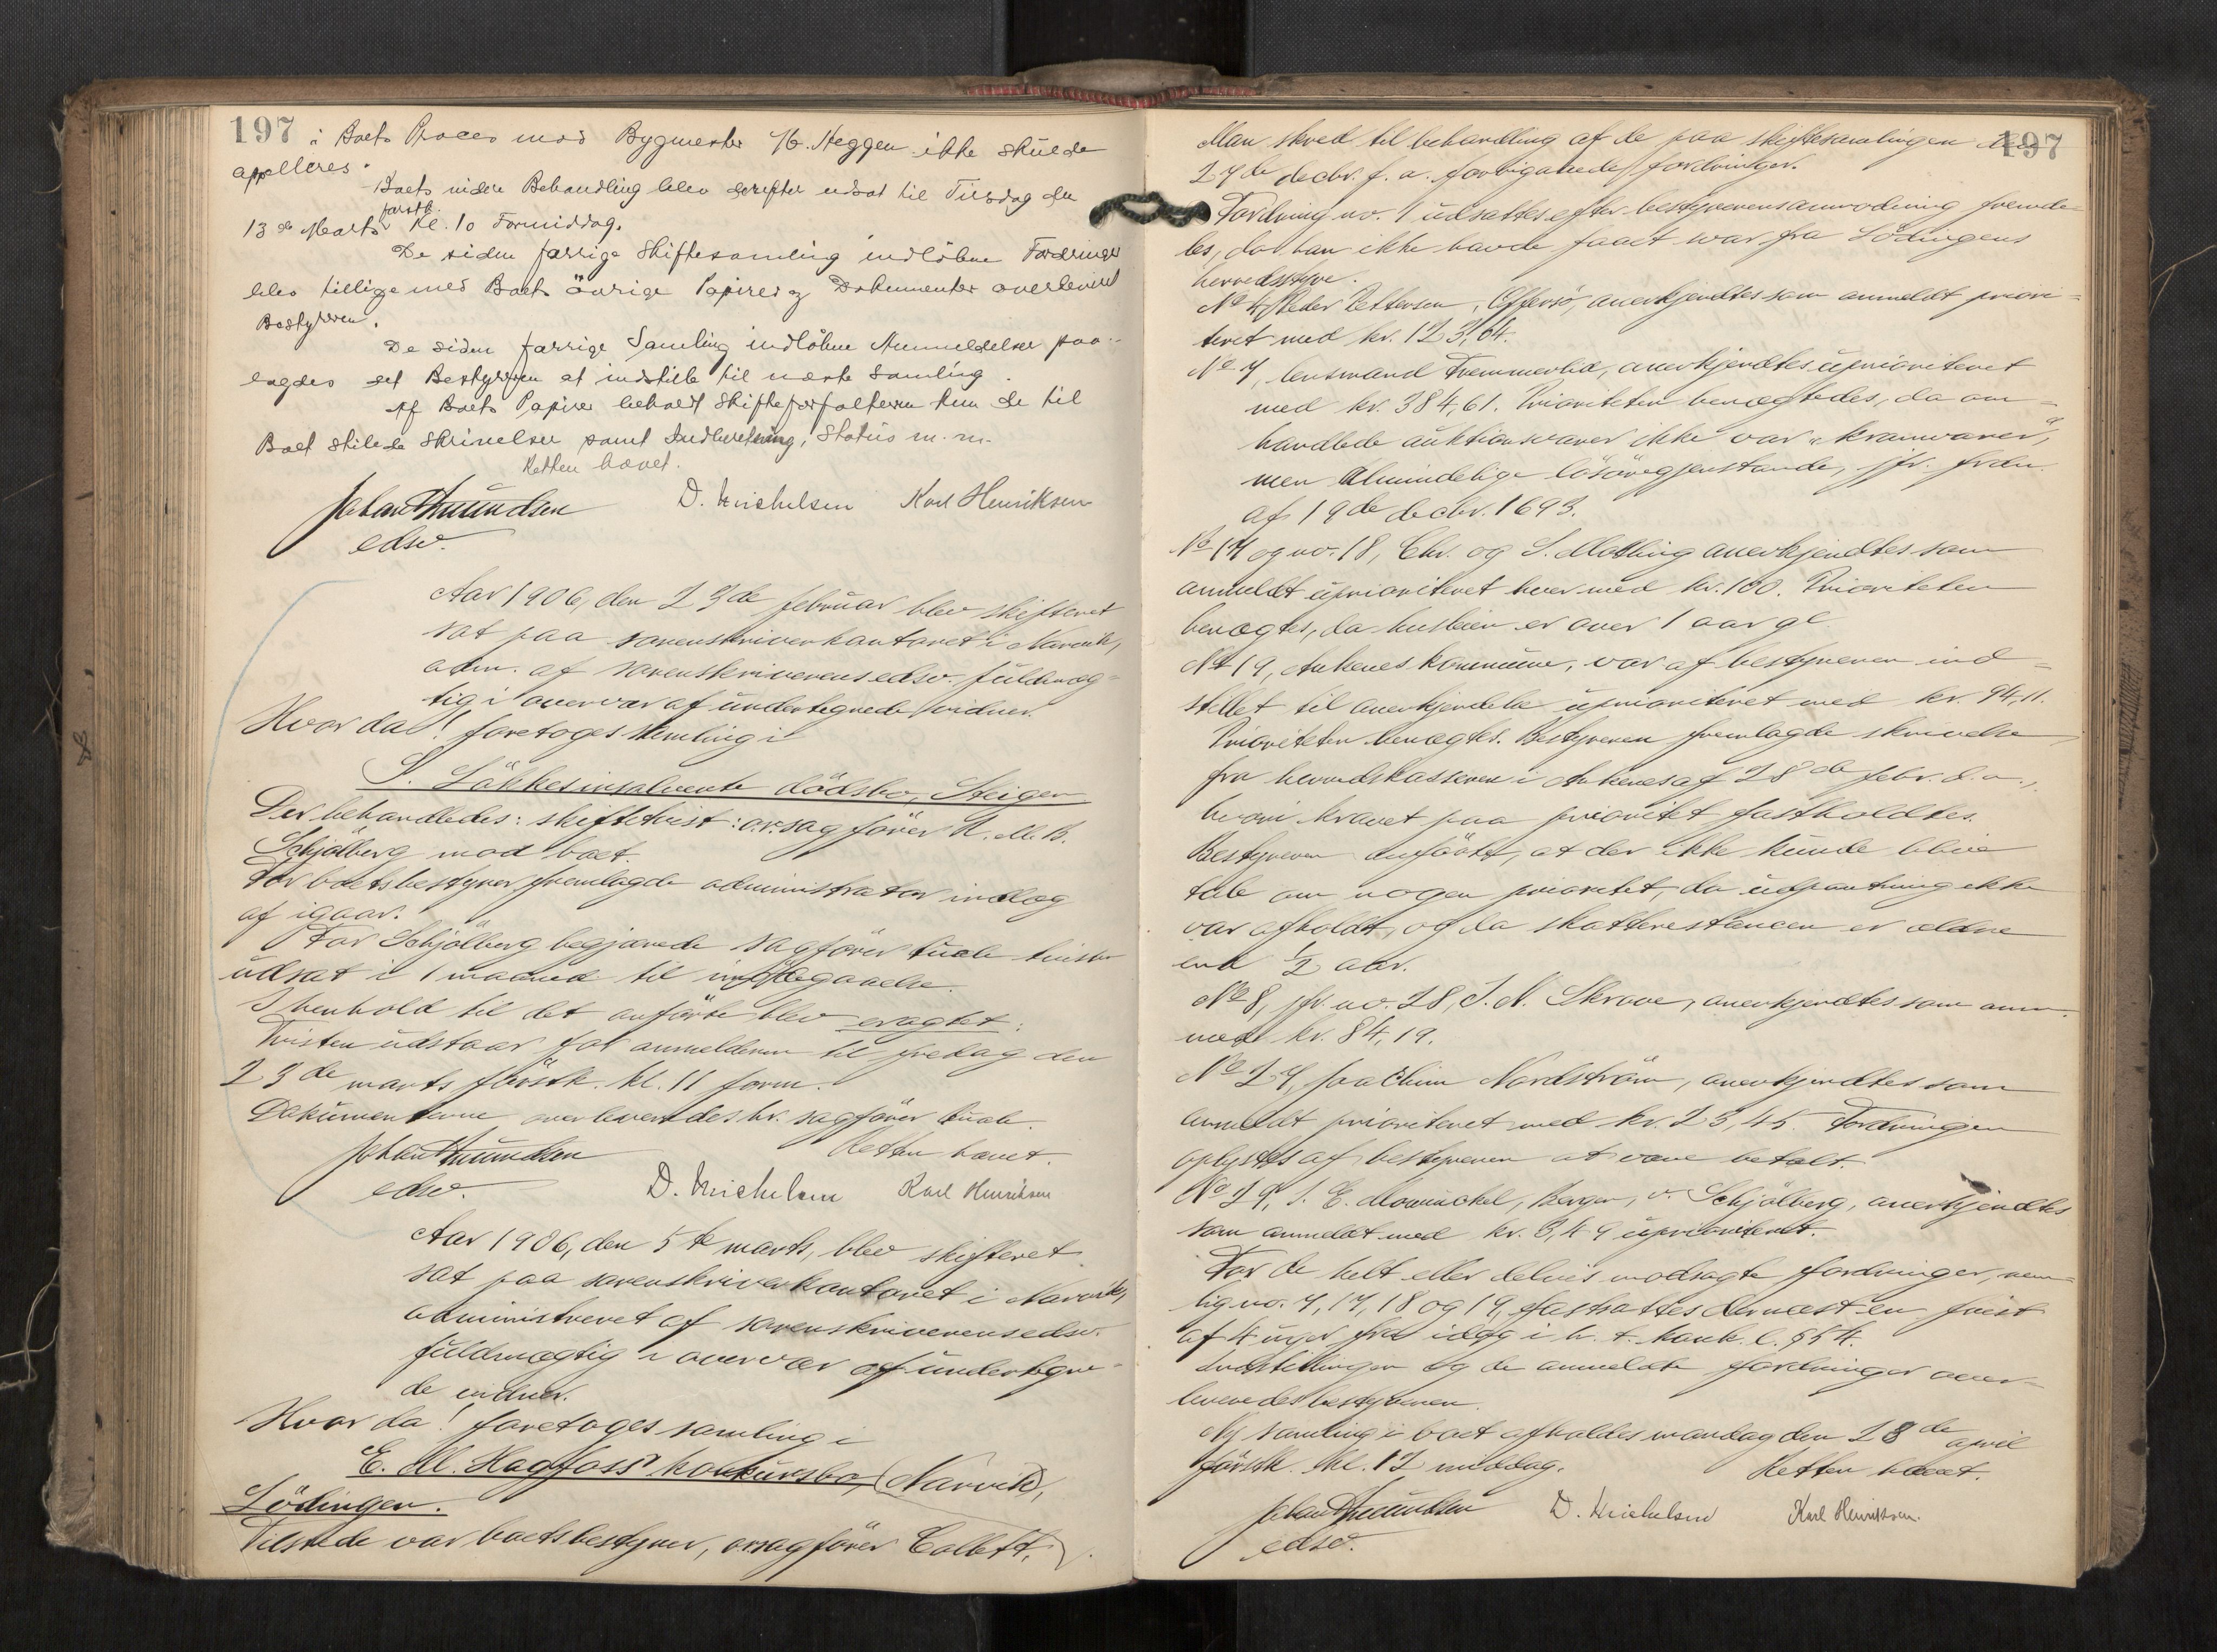 197
i Boets Proces mod Bygmester H. Heggen ikke skulde
appelleres.
Boets videre Behandling blev derefter udsat til Tirsdag den
førstk.
13de Marts Kl. 10 Formiddag.
De siden forrige Skiftesamling indløbne Fordringer
blev tillige med Boets øvrige Papirer og Dokumenter overleveret
Bestyreren.
De siden forrige Samling indløbne Anmeldelser paa-
lagdes det Bestyreren at indstille til næste Samling.
Af Boets Papirer beholdt Skifteforvalteren kun de til
Boet stilede Skrivelser samt Indberetning, Status m. m.
Retten hævet.
Johan Amundsen D. Michelsen Karl Henriksen
edsv.
Aar 1906, den 23de februar blev skifteret
sat paa sorenskriverkontoret i Narvik,
adm. af sorenskriverens edsv. fuldmæg-
tig i overvær af undertegnede vidner.
Hvor da! foretoges samling i
S. Løkkes insolvente dödsbo, Steigen
Der behandledes: skiftetvist: o.r.sagfører K. M. B.
Schjølberg mod boet.
For boets bestyrer fremlagde administrator indlæg
af igaar.
For Schjölberg begjærede sagfører tvisten
udsat i 1 maaned til imödegaaelse.
I henhold til det anförte blev eragtet:
Tvisten udstaar for anmelderen til fredag den
23de marts førstk. kl. 11 form.
Dokumenterne overleveredes hr. sagfører
Retten hævet.
Johan Amundsen
edsv. D. Michelsen Karl Henriksen
Aar 1906, den 5te marts, blev skifteret
sat paa sorenskriverkontoret i Narvik,
administreret af sorenskriverens edsv.
fuldmægtig i overvær af undertegne-
de vidner.
Hvor da! foretoges samling i
E. M. Hagfoss' konkursbo, (Narvik),
Lödingen.
Tilstede var boets bestyrer, o.r.sagfører Collett,
197
Man skred til behandling af de paa skiftesamlingen den
27de decbr. f. a. forbigaaede fordringer.
Fordring no. 1 udsattes efter bestyrerens anmodning fremde-
les, da han ikke havde faaet svar fra Lödingens
herredsstyre.
No 4, Peder Pettersen, Offersö, anerkjendtes som anmeldt priori-
teret med kr. 123,64.
No 7, lensmand Tremmerlid, anerkjendtes uprioriteret
med kr. 384,61. Prioriteten benægtedes, da om-
handlede auktionsvarer ikke var "kramvarer",
men almindelige lösöregjenstande, jfr. frdn.
af 19de decbr. 1693.
No 17 og no. 18, Chr. og S. Molling anerkjendtes som
anmeldt uprioriteret hver med kr. 100. Prioriteten
benægtes, da husleien er over 1 aar gl.
No 19, Ankenes kommune, var af bestyreren ind-
stillet til anerkjendelse uprioriteret med kr. 94,11.
Prioriteten benægtes. Bestyreren fremlagde skrivelse
fra herredskassereren i Ankenes af 28de febr. d. a.,
hvori kravet paa prioritet fastholdtes.
Bestyreren anførte, at der ikke kunde blive
tale om nogen prioritet, da udpantning ikke
var afholdt, og da skatterestancen er ældre
end 1/2 aar.
No 8, jfr. no. 28, J. N. Skrove, anerkjendtes som anm.
med kr. 84,19.
No 27, Joachim Nordström, anerkjendtes som
anmeldt prioriteret med kr. 23,45. Fordringen
oplystes af bestyreren at være betalt.
No 29, J. E. Mowinckel, Bergen, v. Schjölberg, anerkjendtes
som anmeldt med kr. 3,49 uprioriteret.
For de helt eller delvis modsagte fordringer, nem-
lig no. 7, 17, 18 og 19, fastsattes dernæst en frist
af 4 uger fra idag i h. t. konk. l. § 54.
Indstillingen og de anmeldte fordringer over-
leveredes bestyreren.
Ny samling i boet afholdes mandag den 23de april
förstk. kl. 12 middag. Retten hævet.
Johan Amundsen D. Michelsen Karl Henriksen.
edsv.